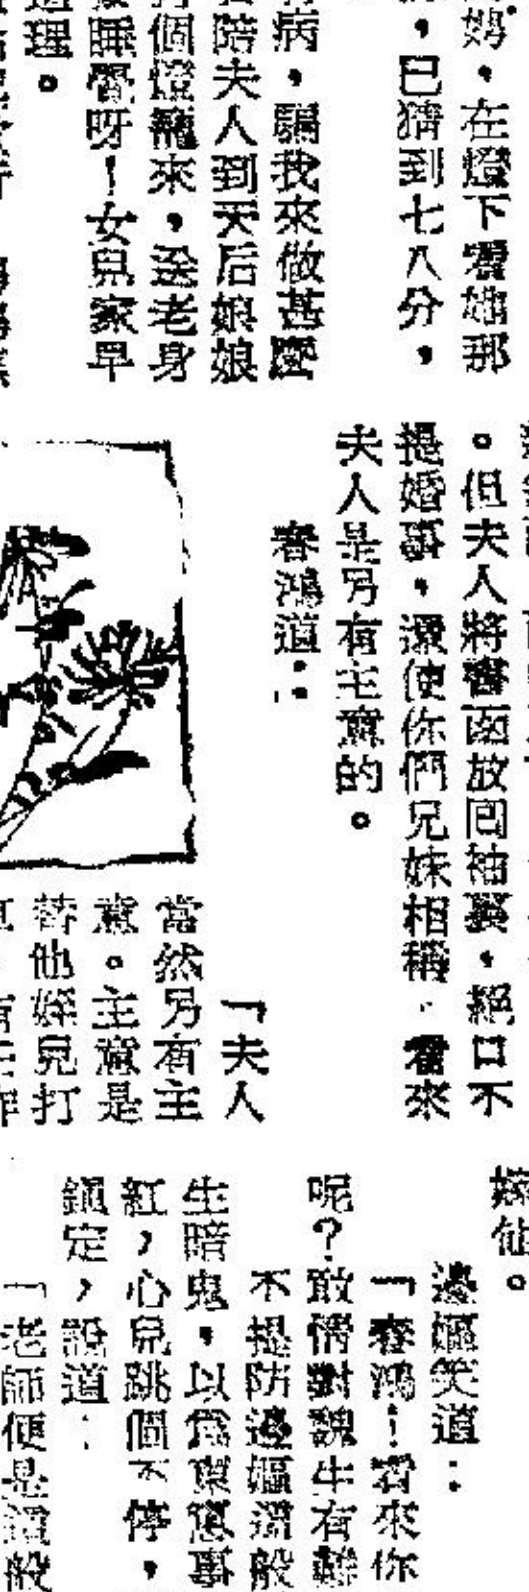 媽，在燈下看她那
，已猜到七八分，
病，騙我來做甚麼
陪夫人到天后娘娘
個燈籠來，送老身
睡覺呀！女兒家早
道理。
。但夫人將書函放回袖裏，絕口不
提婚事，還使你們兄妹相稱，看來
夫人是另有主意的。
春鴻道：
「夫人
當然另有主
意。主意是
替他姪兒打
嫁他。
邊嫗笑道：
「春鴻！看來你
呢？敢情對魏生有
不提防邊嫗這般
生暗鬼，以為東窗事
紅，心兒跳個不停，
鎮定，說道：
「老師便是這般